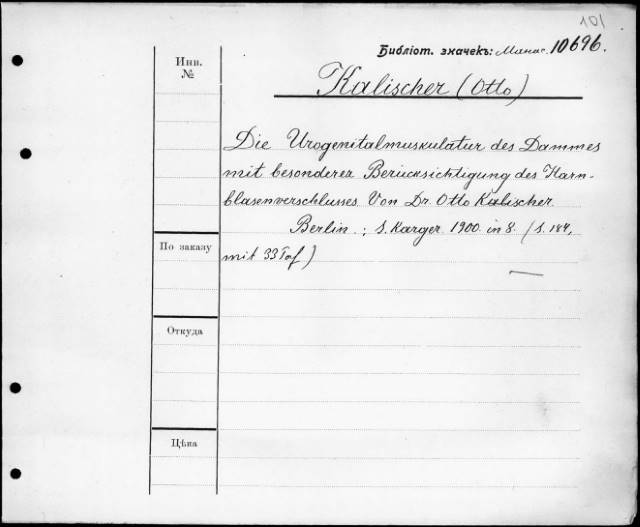 101
Библіот. значекъ: Манас. 10696.
Инв.
№
Kalischer (Otto)
Die Urogenitalmuskulatur des Dammes
mit besonderer Berücksichtigung des Harn-
blasenverschlusses. Von Dr. Otto Kalischer.
Berlin.; S. Karger. 1900. in 8. (S. 184,
По заказу
mit 33 Taf)
Откуда
Цѣна